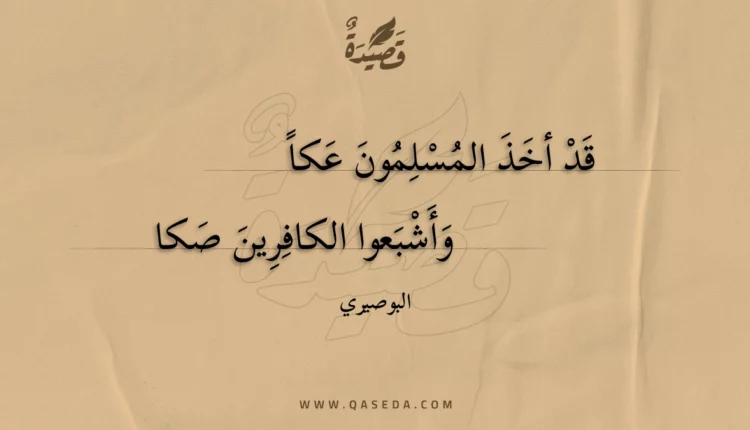 قَصِيْدَةٌ
قَدْ أخَذَ المُسْلِمُونَ عَكاً
وَأَشْبَعوا الكافِرِينَ صَكا
البوصيري
WWW.QASEDA.COM